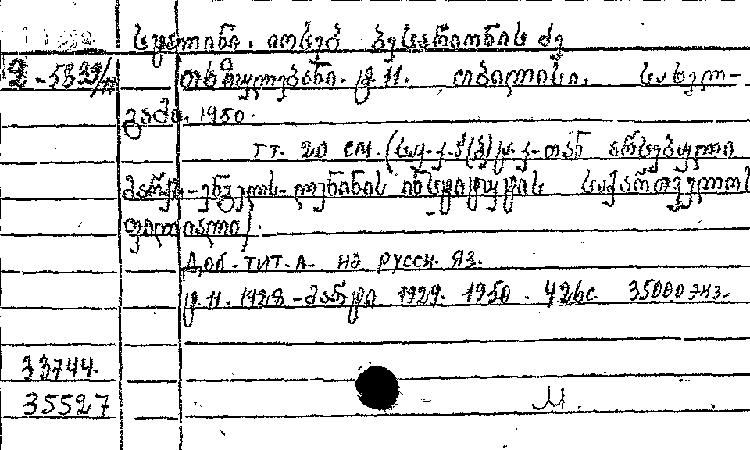 სტალინი, იოსებ ბესარიონის ძე
2-5839/11 თხზულებანი. ტ. 11. თბილისი, სახელ-
გამი, 1950.
тт. 20 см. (საკ. კ. პ(ბ) ც. კ.-თან არსებული
მარქს-ენგელს-ლენინის ინსტიტუტის საქართველოს
ფილიალი).
Доп. тит. л. на русск. яз.
ტ. 11. 1928 - მარტი 1929. 1950. 426с. 35000 экз.
33744.
35527 М.